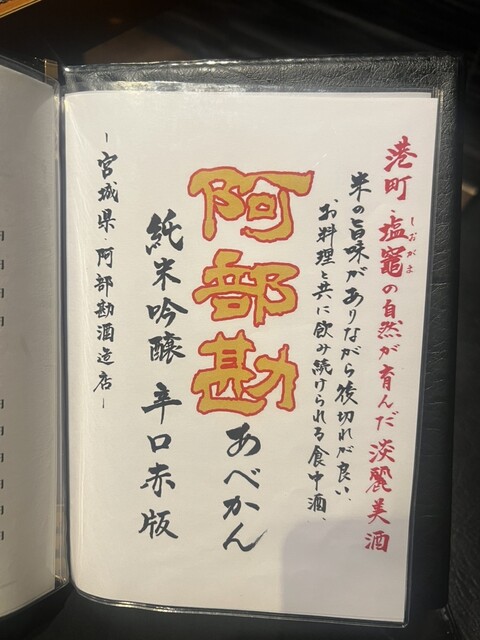 港町・塩竈の自然が育んだ淡麗美酒
しおがま
米の旨味がありながら後切れが良い、
お料理と共に飲み続けられる食中酒、
阿部勘
あべかん
純米吟醸 辛口赤版
－宮城県・阿部勘酒造店－
円
円
円
円
円
円
円
円
円